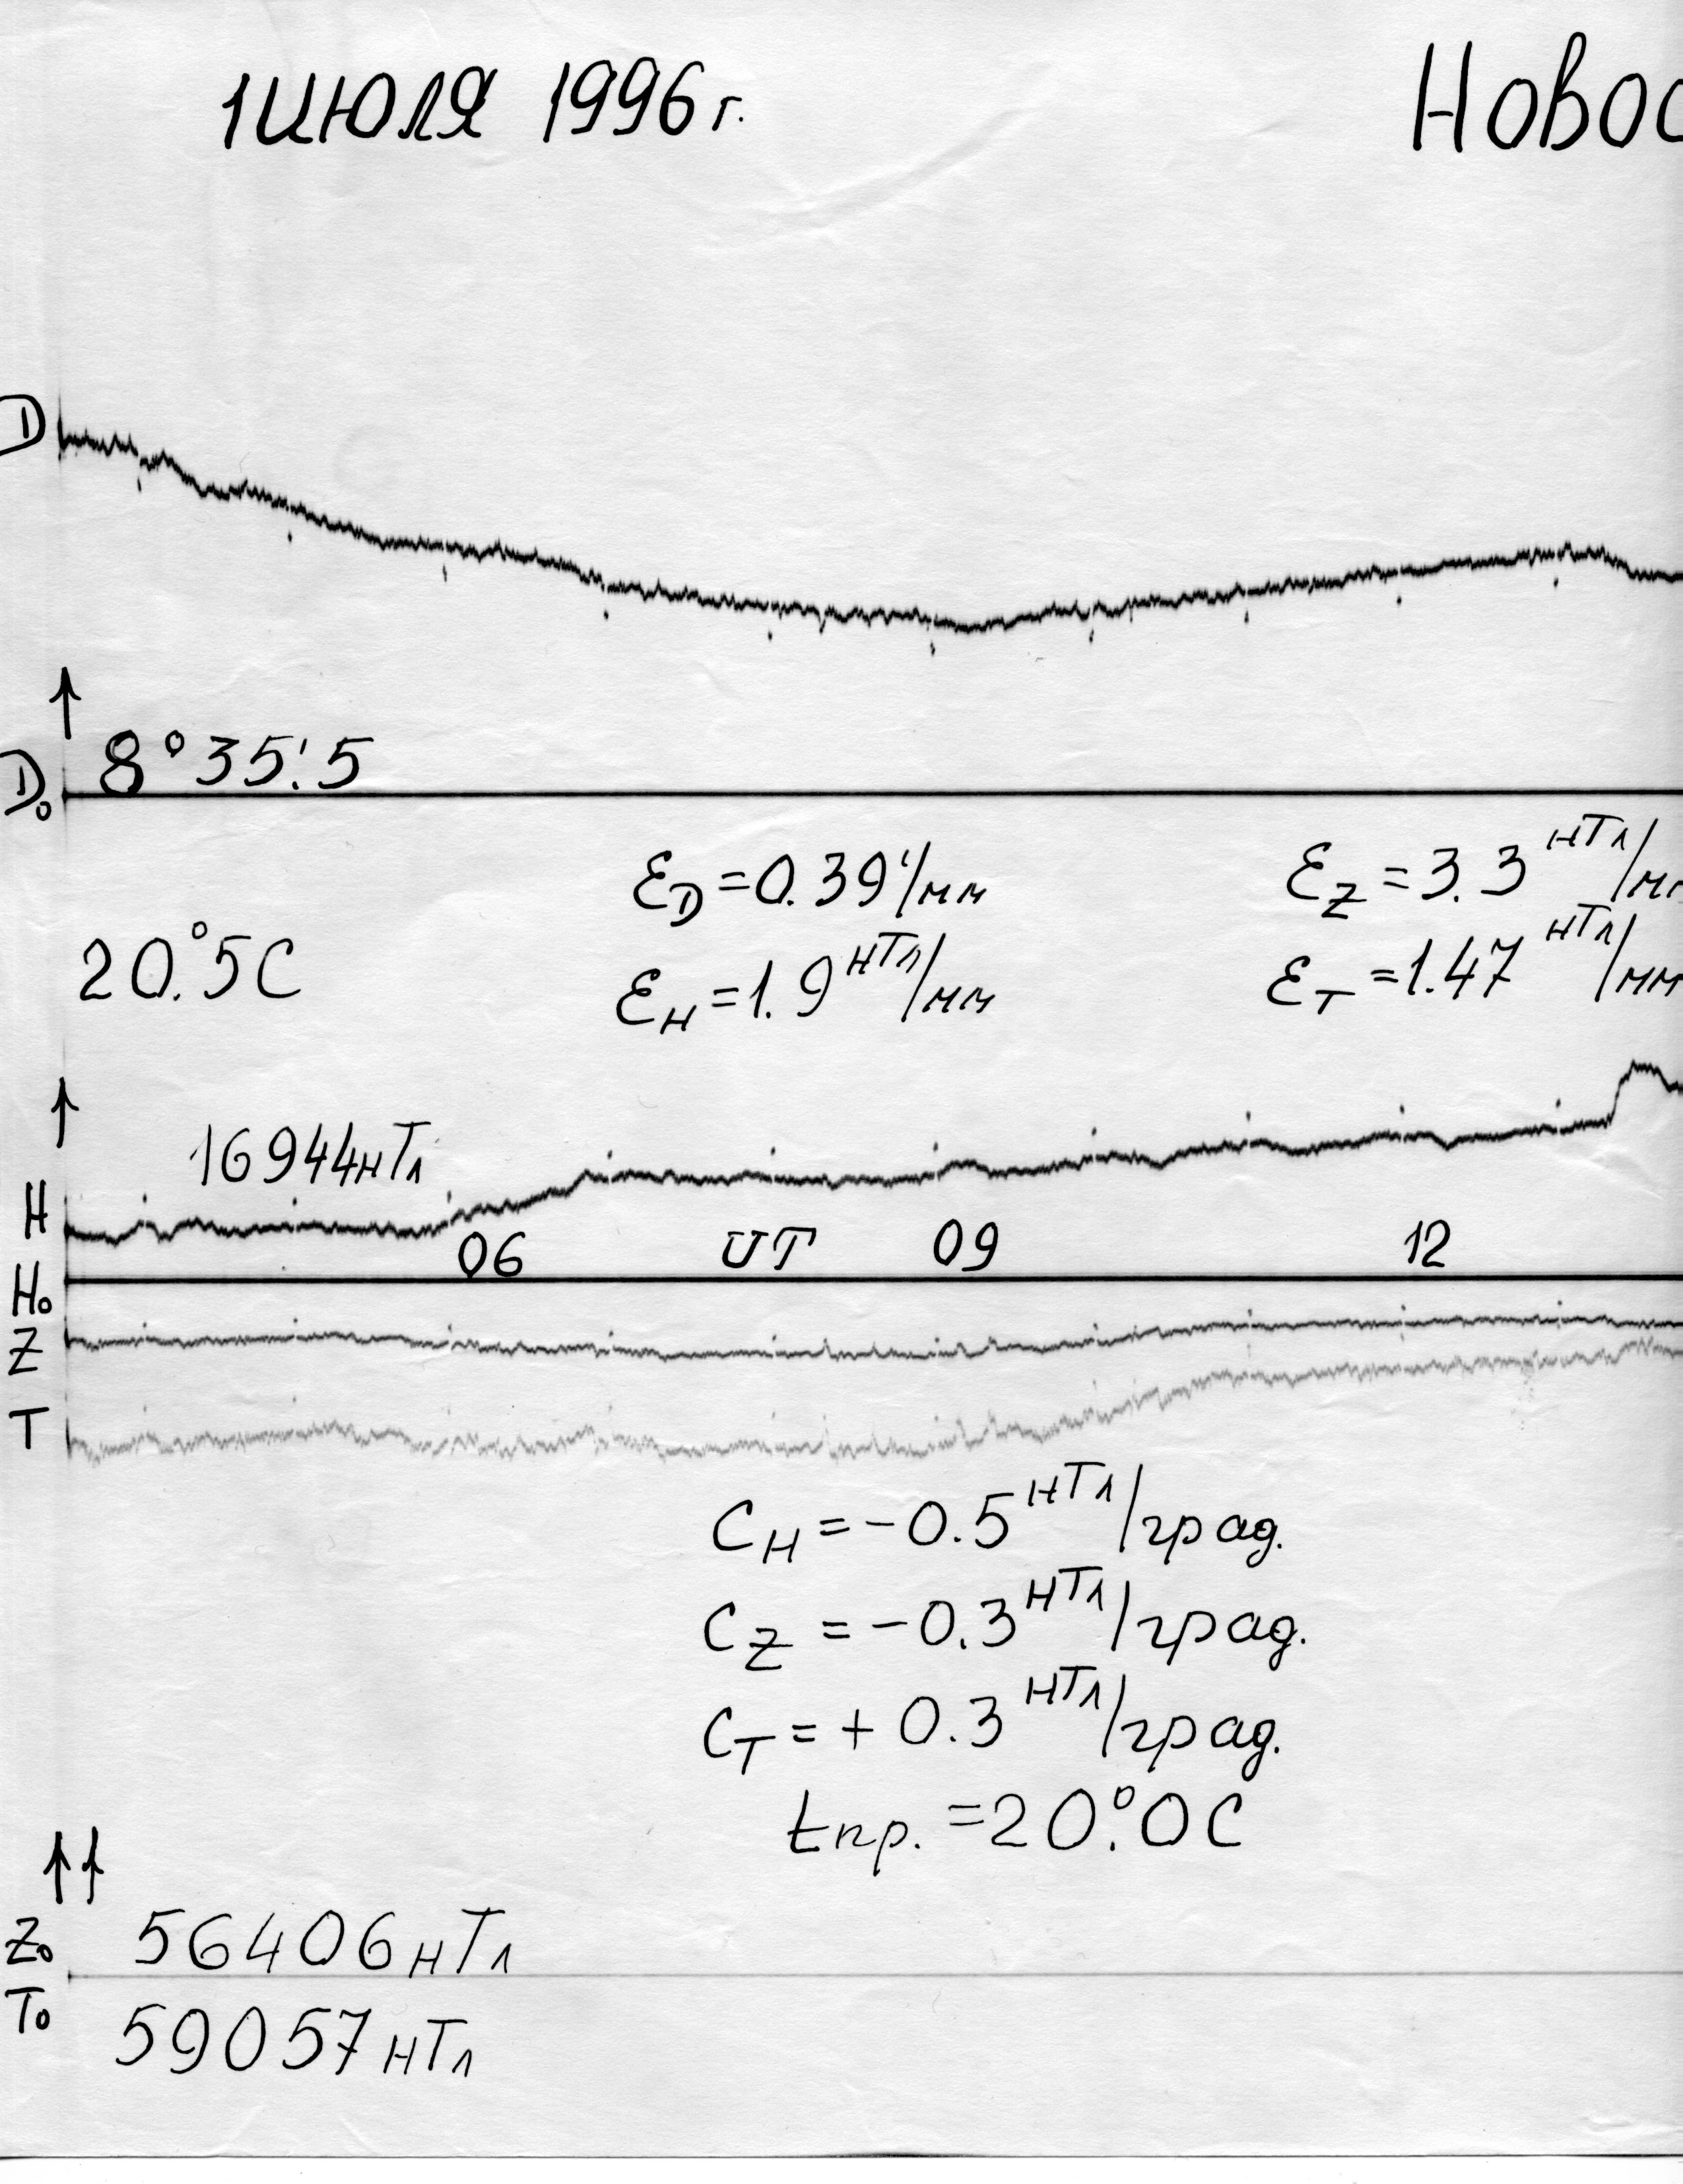 1 ИЮЛЯ 1996 г. Новос
D
8°35!5
D₀
ε_D = 0.39'/мм ε_Z = 3.3 нТл/мм
20.°5 С
ε_H = 1.9 нТл/мм ε_T = 1.47 нТл/мм
16944 нТл
H
06 UT 09 12
H₀
Z
T
C_H = -0.5 нТл/град.
C_Z = -0.3 нТл/град.
C_T = + 0.3 нТл/град.
tпр. = 20.°0 С
Z₀ 56406 нТл
T₀ 59057 нТл